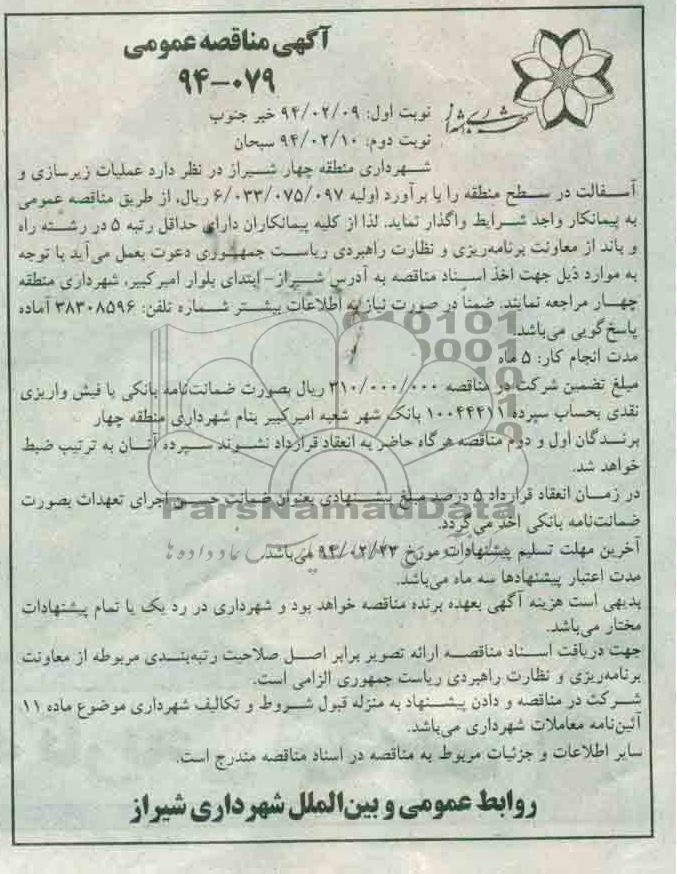 آگهی مناقصه عمومی
۹۴-۰۷۹
شهرداری شیراز
نوبت اول: ۹۴/۰۲/۰۹ خبر جنوب
نوبت دوم: ۹۴/۰۲/۱۰ سبحان
شهرداری منطقه چهار شیراز در نظر دارد عملیات زیرسازی و
آسفالت در سطح منطقه را با برآورد اولیه ۶/۰۳۳/۰۷۵/۰۹۷ ریال، از طریق مناقصه عمومی
به پیمانکار واجد شرایط واگذار نماید. لذا از کلیه پیمانکاران دارای حداقل رتبه ۵ در رشته راه
و باند از معاونت برنامه‌ریزی و نظارت راهبردی ریاست جمهوری دعوت بعمل می‌آید با توجه
به موارد ذیل جهت اخذ اسناد مناقصه به آدرس شیراز- ابتدای بلوار امیرکبیر، شهرداری منطقه
چهار مراجعه نمایند. ضمناً در صورت نیاز به اطلاعات بیشتر شماره تلفن: ۳۸۳۰۸۵۹۶ آماده
پاسخ‌گویی می‌باشد.
مدت انجام کار: ۵ ماه
مبلغ تضمین شرکت در مناقصه ۳۱۰/۰۰۰/۰۰۰ ریال بصورت ضمانت‌نامه بانکی یا فیش واریزی
نقدی بحساب سپرده ۱۰۰۴۴۴۱۱ بانک شهر شعبه امیرکبیر بنام شهرداری منطقه چهار
برندگان اول و دوم مناقصه هرگاه حاضر به انعقاد قرارداد نشوند سپرده آنان به ترتیب ضبط
خواهد شد.
در زمان انعقاد قرارداد ۵ درصد مبلغ پیشنهادی بعنوان ضمانت حسن اجرای تعهدات بصورت
ضمانت‌نامه بانکی اخذ می‌گردد.
ParsNamadData
آخرین مهلت تسلیم پیشنهادات مورخ می‌باشد.
مدت اعتبار پیشنهادها سه ماه می‌باشد.
بدیهی است هزینه آگهی بعهده برنده مناقصه خواهد بود و شهرداری در رد یک یا تمام پیشنهادات
مختار می‌باشد.
جهت دریافت اسناد مناقصه ارائه تصویر برابر اصل صلاحیت رتبه‌بندی مربوطه از معاونت
برنامه‌ریزی و نظارت راهبردی ریاست جمهوری الزامی است.
شرکت در مناقصه و دادن پیشنهاد به منزله قبول شروط و تکالیف شهرداری موضوع ماده ۱۱
آئین‌نامه معاملات شهرداری می‌باشد.
سایر اطلاعات و جزئیات مربوط به مناقصه در اسناد مناقصه مندرج است.
روابط عمومی و بین‌الملل شهرداری شیراز